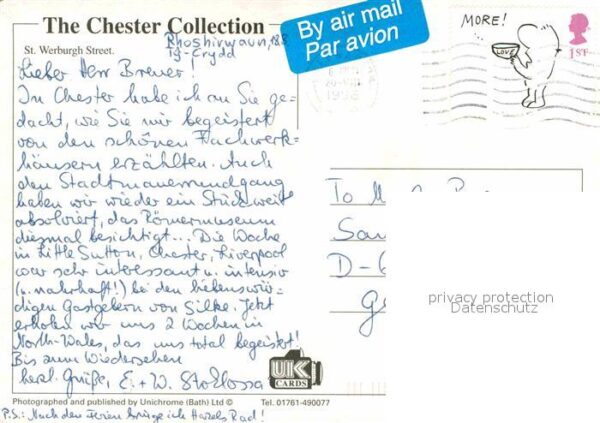 The Chester Collection
St. Werburgh Street.
By air mail
Par avion
MORE!
LOVE
1ST
1998
Lieber Herr Breuer!
In Chester habe ich an Sie ge-
dacht, wie Sie mir begeistert
von den schönen Fachwerk-
häusern erzählten. Auch
den Stadtmauerrundgang
haben wir wieder ein Stück weit
absolviert, das Römermuseum
diesmal besichtigt... Die Woche
in Little Sutton, Chester, Liverpool
war sehr interessant u. intensiv
(u. nahrhaft!) bei den liebenswür-
digen Gastgebern von Silke. Jetzt
erholen wir uns 2 Wochen in
North-Wales, das uns total begeistert!
Bis zum Wiedersehen
herzl. Grüße, E. + W.
UK
CARDS
Photographed and published by Unichrome (Bath) Ltd © Tel. 01761-490077
P.S.: Nach den Ferien bringe ich Harels Rad!
To
D-6
privacy protection
Datenschutz